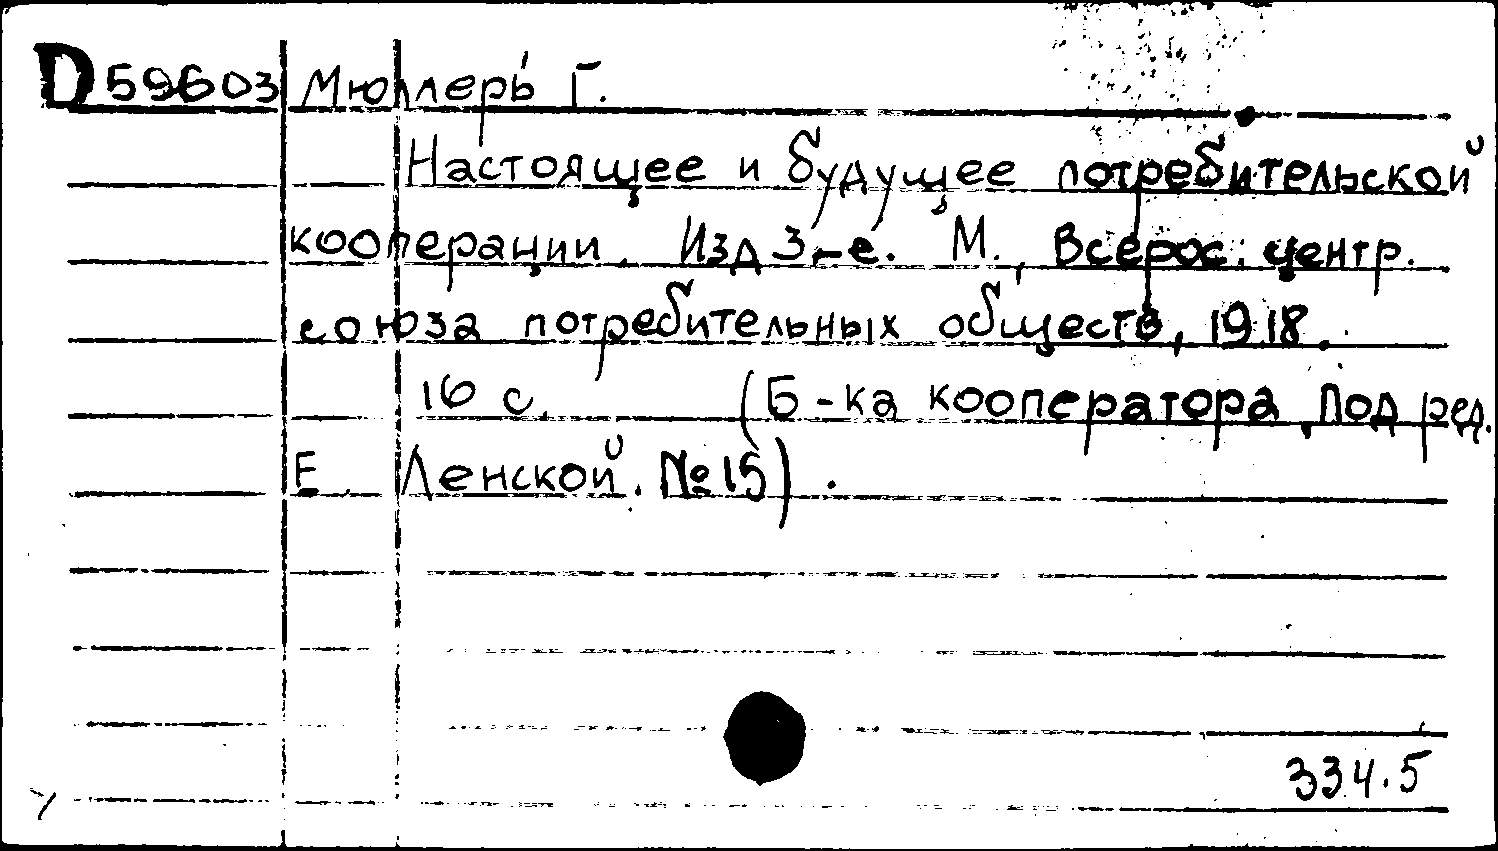 D 59603 Мюллеръ Г.
Настоящее и будущее потребительской
кооперации. Изд 3-е. М., Всерос. центр.
союза потребительных обществ, 1918.
16 с. (Б-ка кооператора Под ред.
Е Ленской. № 15).
334.5